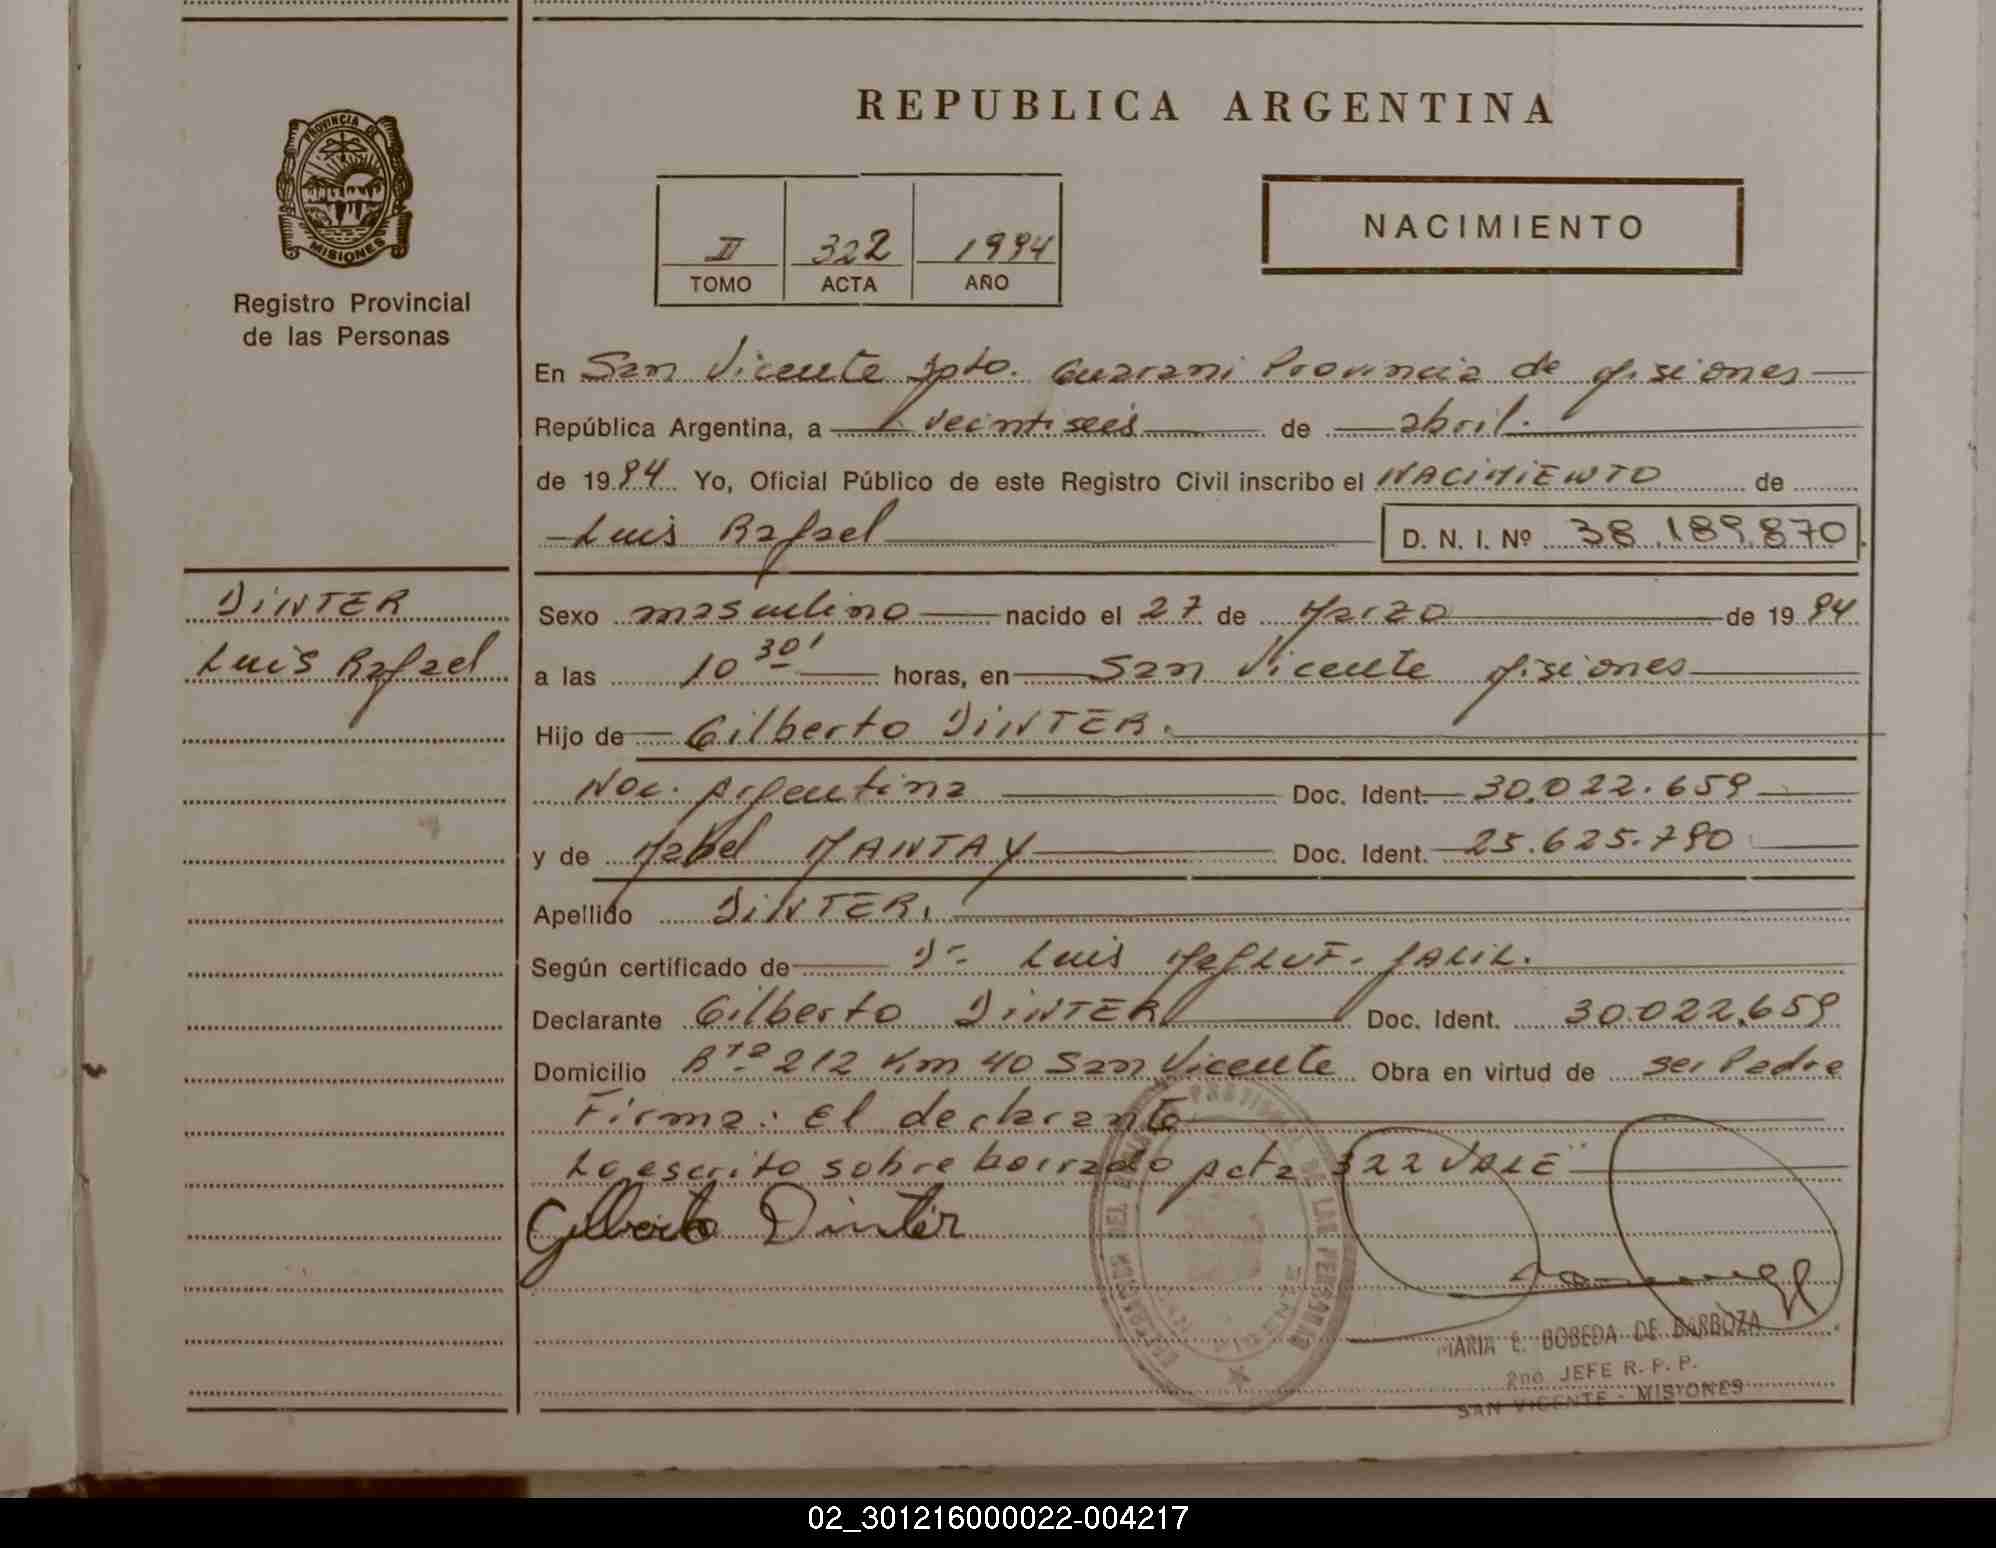 REPUBLICA ARGENTINA
PROVINCIA DE
MISIONES
Registro Provincial
de las Personas
II 322 1994
TOMO ACTA AÑO
NACIMIENTO
En San Vicente Dpto. Guarani Provincia de Misiones
República Argentina, a veintiseis de abril.
de 1994 Yo, Oficial Público de este Registro Civil inscribo el NACIMIENTO de
Luis Rafael D. N. I. Nº 38.189.870
DINTER
Luis Rafael
Sexo masculino nacido el 27 de Marzo de 1994
a las 10 30' horas, en San Vicente Misiones
Hijo de Gilberto DINTER.
Nac. Argentina Doc. Ident. 30.022.659
y de Mabel MANTAY Doc. Ident. 25.625.790
Apellido DINTER.
Según certificado de Dr. Luis JALIL.
Declarante Gilberto DINTER Doc. Ident. 30.022.659
Domicilio Rta 212 Km 40 San Vicente Obra en virtud de ser Padre
Firma: El declarante
Lo escrito sobre borrado acta 322 VALE
Gilberto Dinter
DE LAS PERSONAS
MARIA E. BOBEDA DE BARBOZA
2do JEFE R. P. P.
SAN VICENTE - MISIONES
02_301216000022-004217